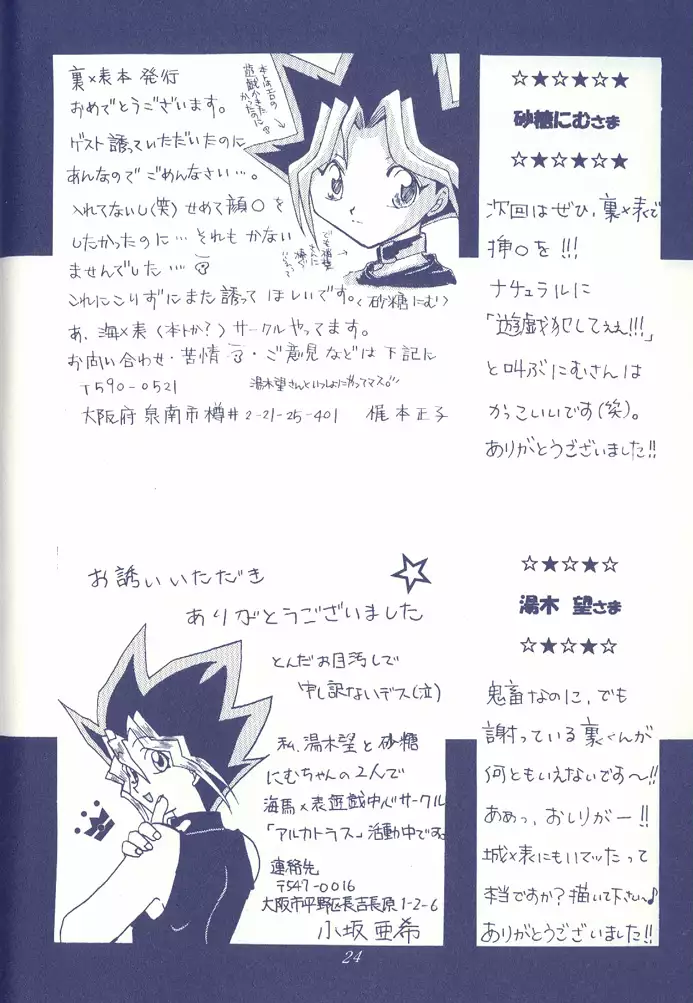 裏×表本 発行
おめでとうございます。
ゲスト誘っていただいたのに
あんなのでごめんなさい…。
入れてないし(笑)せめて顔○を
したかったのに…それもかない
ませんでした…
これにこりずにまた誘ってほしいです。(砂糖にむ)
あ、海×表(本トか?)サークルやってます。
お問い合わせ・苦情・ご意見などは下記に
〒590-0521
湯木望さんといっしょにやってマス。
大阪府泉南市樽井2-21-25-401 梶本正子
本トはエロの
遊戯かきた
かったのに
☆★☆★☆★
砂糖にむさま
☆★☆★☆★
次回はぜひ、裏×表で
挿○を!!!
ナチュラルに
「遊戯犯してぇぇ!!!」
と叫ぶにむさんは
かっこいいです(笑)。
ありがとうございました!!
お誘いいただき
ありがとうございました
とんだお目汚しで
申し訳ないデス(泣)
私、湯木望と砂糖
にむちゃんの2人で
海馬×表遊戯中心サークル
「アルカトラス」活動中です。
連絡先
〒547-0016
大阪市平野区長吉長原1-2-6
小坂亜希
☆★☆★☆
湯木 望さま
☆★☆★☆
鬼畜なのに、でも
謝っている裏くんが
何ともいえないです〜!!
ああっ、おしりがー!!
城×表にもいてッたって
本当ですか?描いて下さい〜♪
ありがとうございました!!
24